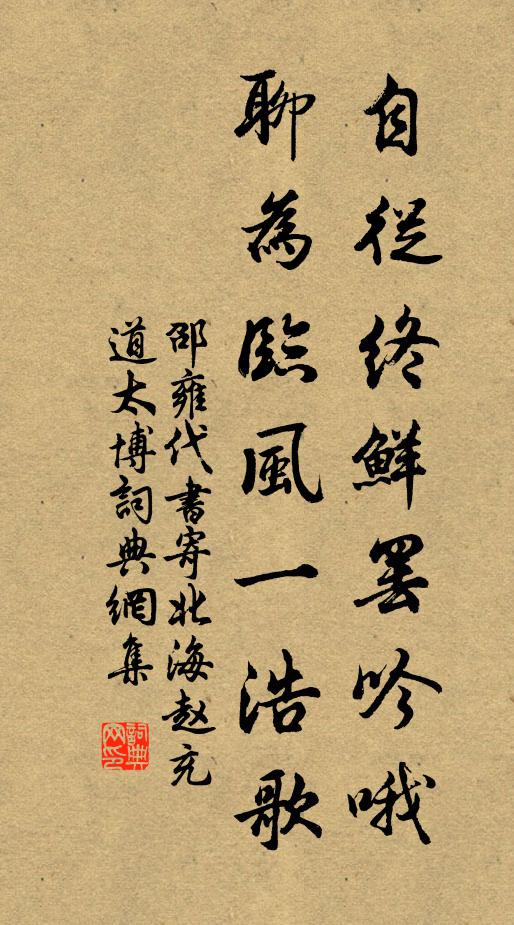 自從終鮮罷吟哦
聊為臨風一浩歌
邵雍代書寄北海赵充
道太博詞典網集
詞典网印